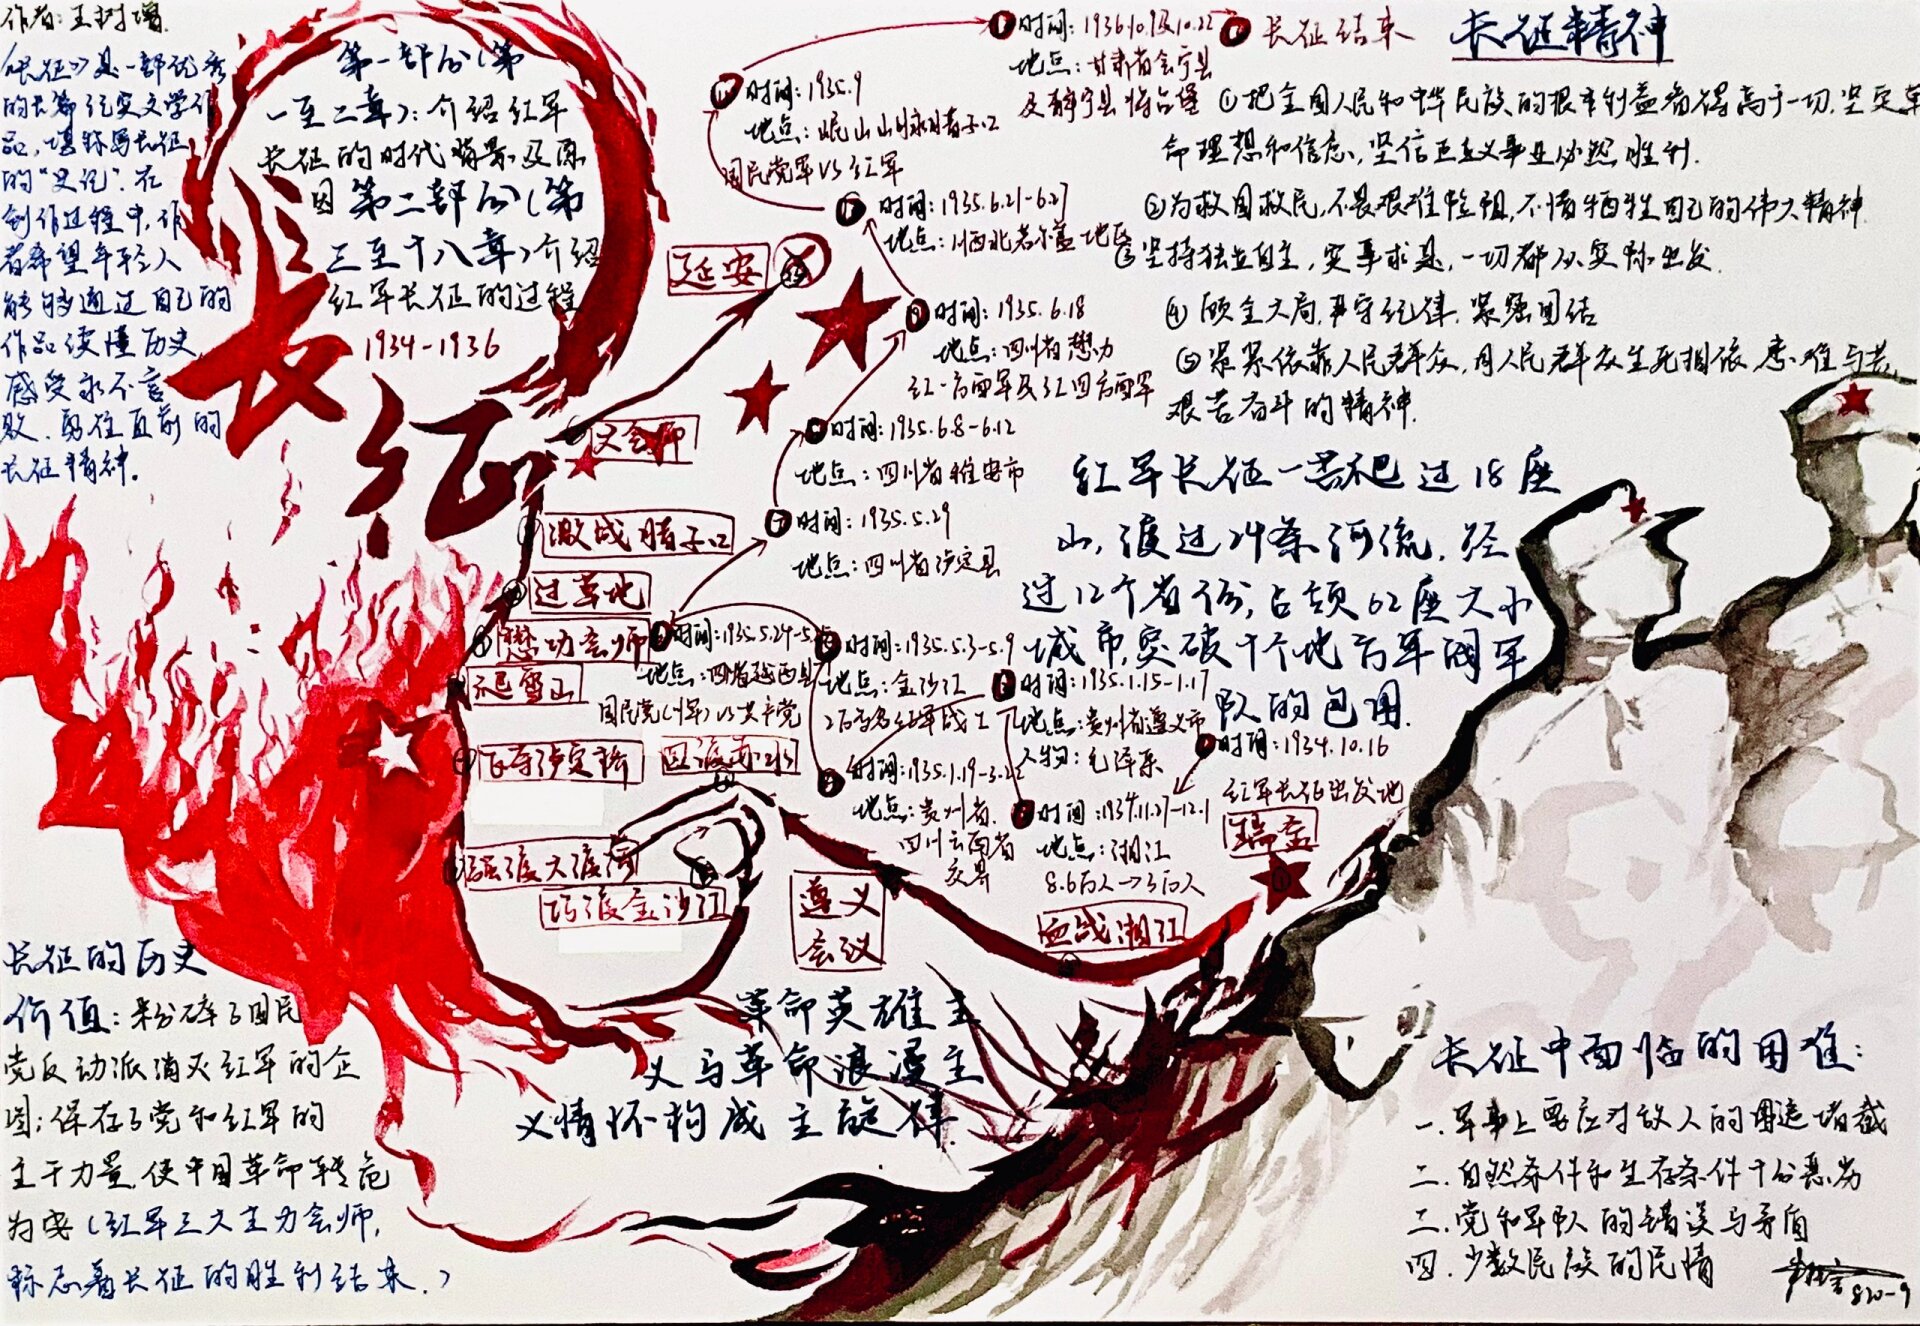 作者:王树增
《长征》是一部优秀
的长篇纪实文学作
品,堪称写长征
的“史记”.在
创作过程中,作
者希望年轻人
能够通过自己的
作品读懂历史,
感受永不言
败、勇往直前的
长征精神.
第一部分(第
一至二章):介绍红军
长征的时代背景及原
因第二部分(第
三至十八章)介绍
红军长征的过程
1934-1936
长
征
时间:1936.10.9及10.22
地点:甘肃省会宁县
及静宁县将台堡
长征结束
时间:1935.9
地点:岷山山脉腊子口
国民党军VS红军
时间:1935.6.21-6.27
地点:川西北若尔盖地区
时间:1935.6.18
地点:四川省懋功
红一方面军及红四方面军
时间:1935.6.8-6.12
地点:四川省雅安市
时间:1935.5.29
地点:四川省泸定县
时间:1935.5.24-5.
地点:四省越西县
国民党(川军)VS共产党
时间:1935.5.3-5.9
地点:金沙江
2万多名红军战士
时间:1935.1.19-3.22
地点:贵州省.
四川云南省
交界
时间:1935.1.15-1.17
地点:贵州省遵义市
人物:毛泽东
时间:1934.11.27-12.1
地点:湘江
8.6万人→3万人
时间:1934.10.16
红军长征出发地
瑞金
血战湘江
遵义
会议
四渡赤水
巧渡金沙江
强渡大渡河
飞夺泸定桥
过雪山
懋功会师
过草地
激战腊子口
大会师
延安
长征精神
①把全国人民和中华民族的根本利益看得高于一切,坚定革
命理想和信念,坚信正义事业必然胜利.
②为救国救民,不畏艰难险阻,不惜牺牲自己的伟大精神.
③坚持独立自主,实事求是,一切都从实际出发.
④顾全大局,事守纪律,紧强团结
⑤紧紧依靠人民群众,同人民群众生死相依,患难与共,
艰苦奋斗的精神.
红军长征一共爬过18座
山,渡过24条河流,经
过12个省份,占领62座大小
城市,突破十个地方军阀军
队的包围.
长征的历史
价值:粉碎了国民
党反动派消灭红军的企
图;保存了党和红军的
主干力量,使中国革命转危
为安(红军三大主力会师,
标志着长征的胜利结束.)
革命英雄主
义与革命浪漫主
义情怀构成主旋律.
长征中面临的困难:
一.军事上要应对敌人的围追堵截
二.自然条件和生存条件十分恶劣
二.党和军队的错误与矛盾
四.少数民族的民情
820-9